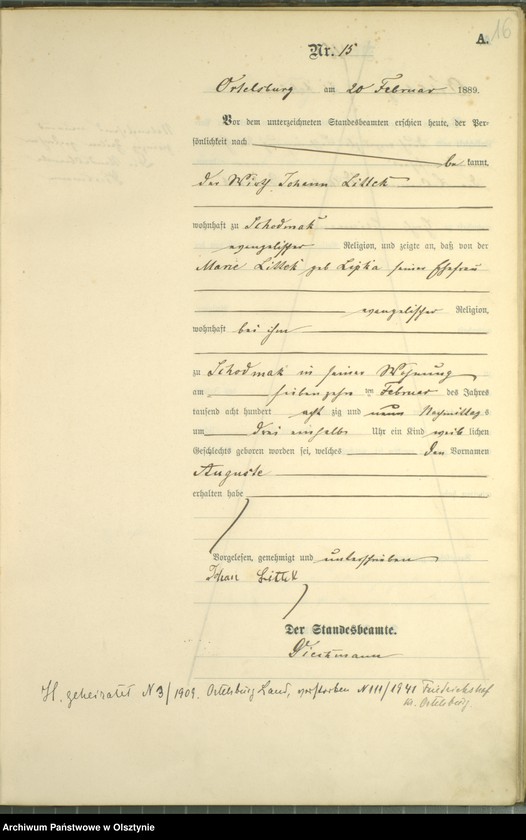 16
A.
Nr. 15
Ortelsburg am 20 Februar 1889.
Vor dem unterzeichneten Standesbeamten erschien heute, der Per-
sönlichkeit nach
be kannt,
der Wirth Johann Littek
wohnhaft zu Schodmak
evangelischer Religion, und zeigte an, daß von der
Marie Littek geb Lipka seiner Ehefrau
evangelischer Religion,
wohnhaft bei ihm
zu Schodmak in seiner Wohnung
am siebenzehn ten Februar des Jahres
tausend acht hundert acht zig und neun Nachmittag s
um drei einhalb Uhr ein Kind weib lichen
Geschlechts geboren worden sei, welches den Vornamen
Auguste
erhalten habe
Vorgelesen, genehmigt und unterschrieben
Johan Littek
Der Standesbeamte.
H. geheiratet N 3/1909. Ortelsburg Land, verstorben N 111/1941 Friedrichshof
Kr. Ortelsburg.
Archiwum Państwowe w Olsztynie